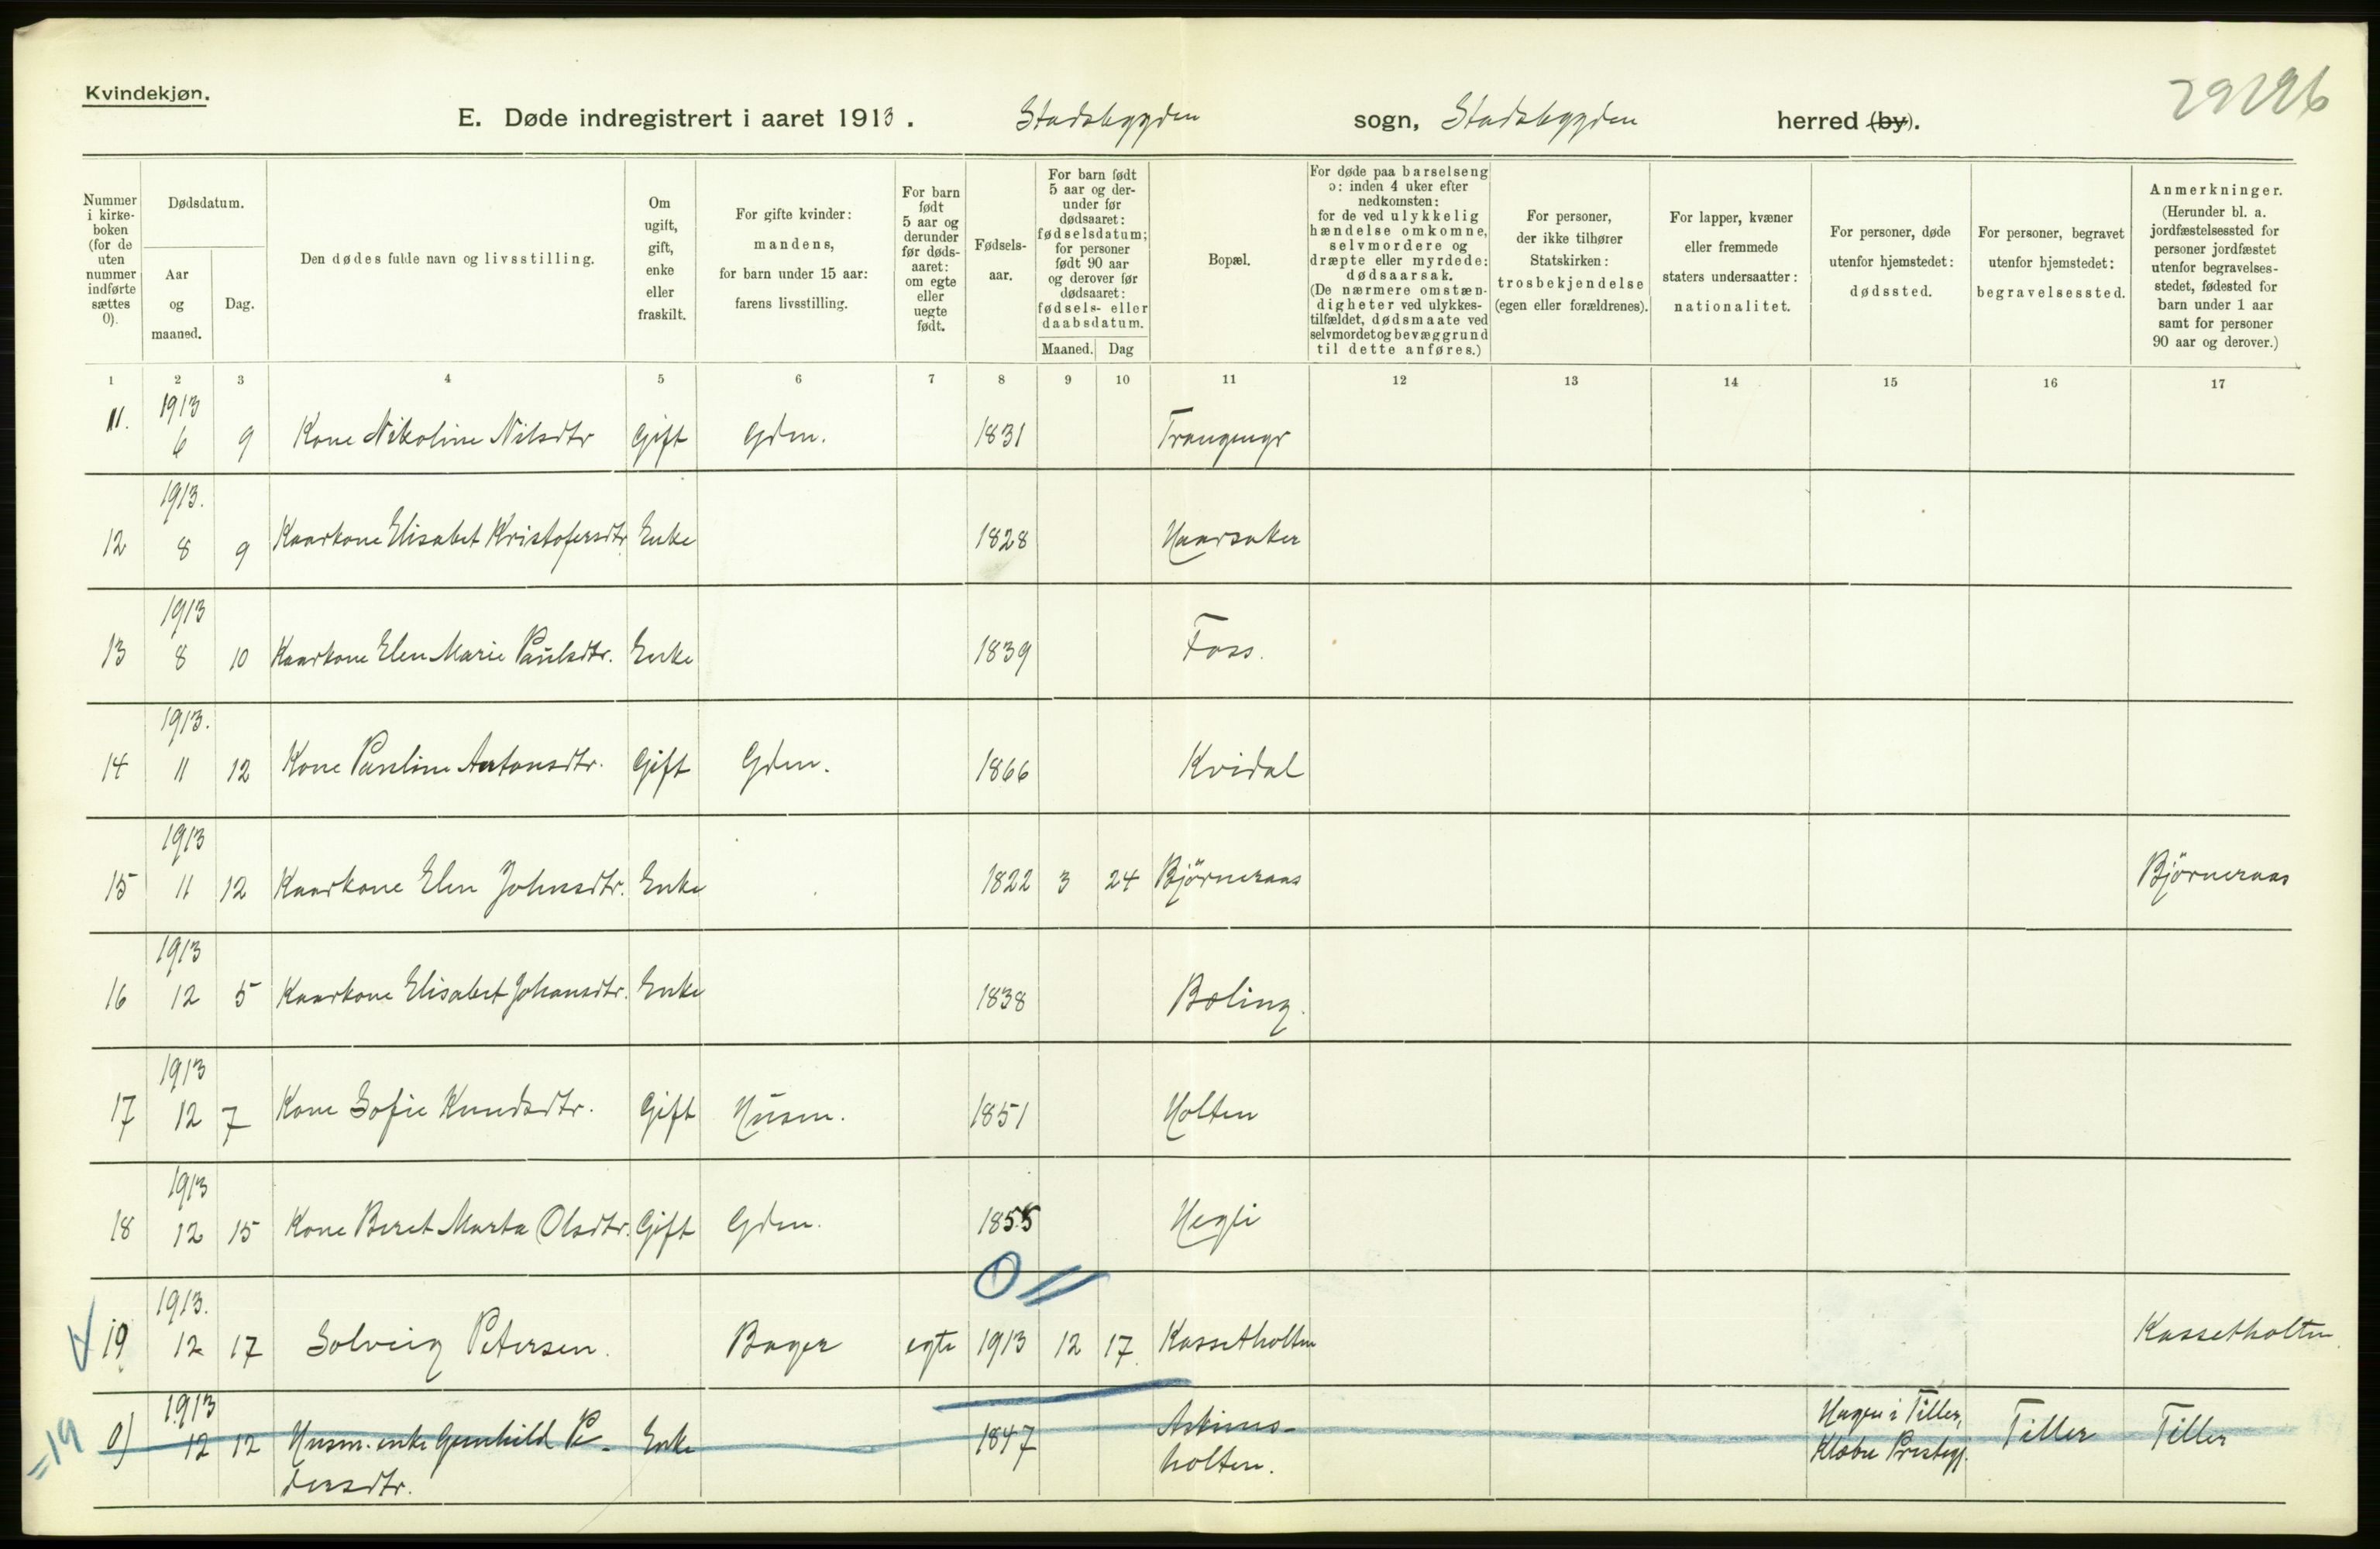 Kvindekjøn.
29196
E. Døde indregistrert i aaret 1913. Stadsbygden sogn, Stadsbygden herred (by).
Nummer i kirke-boken (for de uten nummer indførte sættes 0).
Dødsdatum.
Aar og maaned.
Dag.
Den dødes fulde navn og livsstilling.
Om ugift, gift, enke eller fraskilt.
For gifte kvinder: mandens, for barn under 15 aar: farens livsstilling.
For barn født 5 aar og derunder før døds-aaret: om egte eller uegte født.
Fødsels-aar.
For barn født 5 aar og der-under før dødsaaret: fødselsdatum; for personer født 90 aar og derover før dødsaaret: fødsels- eller daabsdatum.
Maaned. Dag
Bopæl.
For døde paa barselseng ɔ: inden 4 uker efter nedkomsten: for de ved ulykkelig hændelse omkomne, selvmordere og dræpte eller myrdede: dødsaarsak. (De nærmere omstæn-digheter ved ulykkes-tilfældet, dødsmaate ved selvmordet og bevæggrund til dette anføres.)
For personer, der ikke tilhører Statskirken: trosbekjendelse (egen eller forældrenes).
For lapper, kvæner eller fremmede staters undersaatter: nationalitet.
For personer, døde utenfor hjemstedet: dødssted.
For personer, begravet utenfor hjemstedet: begravelsessted.
Anmerkninger. (Herunder bl. a. jordfæstelsessted for personer jordfæstet utenfor begravelses-stedet, fødested for barn under 1 aar samt for personer 90 aar og derover.)
1 2 3 4 5 6 7 8 9 10 11 12 13 14 15 16 17
1913
11. 6 9 Kone Nikoline Nilsdtr Gift Gdm. 1831
1913.
12 8 9 Kaarkone Elisabet Kristofersdtr Enke 1828 Haarsaker
1913
13 8 10 Kaarkone Elen Marie Paulsdtr. Enke 1839 Foss.
1913.
14 11 12 Kone Pauline Antonsdtr. Gift Gdm. 1866 Kvidal
1913
15 11 12 Kaarkone Elen Johnsdtr. Enke 1822 3 24 Björneraas Björneraas
1913
16 12 5 Kaarkone Elisabet Johansdtr. Enke 1838 Boling.
1913
17 12 7 Kone Sofie Knudsdtr. Gift Husm. 1851 Holten
1913
18 12 15 Kone Beret Marta Olsdtr. Gift Gdm. 1855 Hegli
1913.
19 12 17 Solveig Petersen. Bager egte 1913 12 17. Kassetholten Kassetholten.
1913
=19 0) 12 12 Husm. enke Gunhild Pe- Enke 1847 Askims- Hagen i Tiller, Tiller Tiller
dersdtr. holten. Klæbu Prestegj.